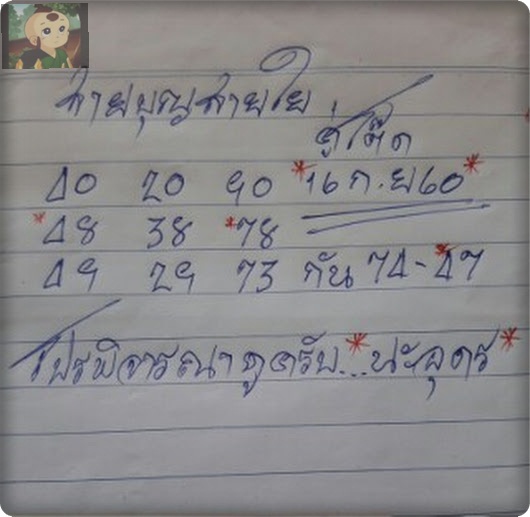 สายบุญสายใย
คู่โต๊ด
40 20 90 *16 ก.ย 60*
*48 38 *78
49 29 73 กัน 74-*47
โปรพิจารณาดูครับ*...นะอุดร*